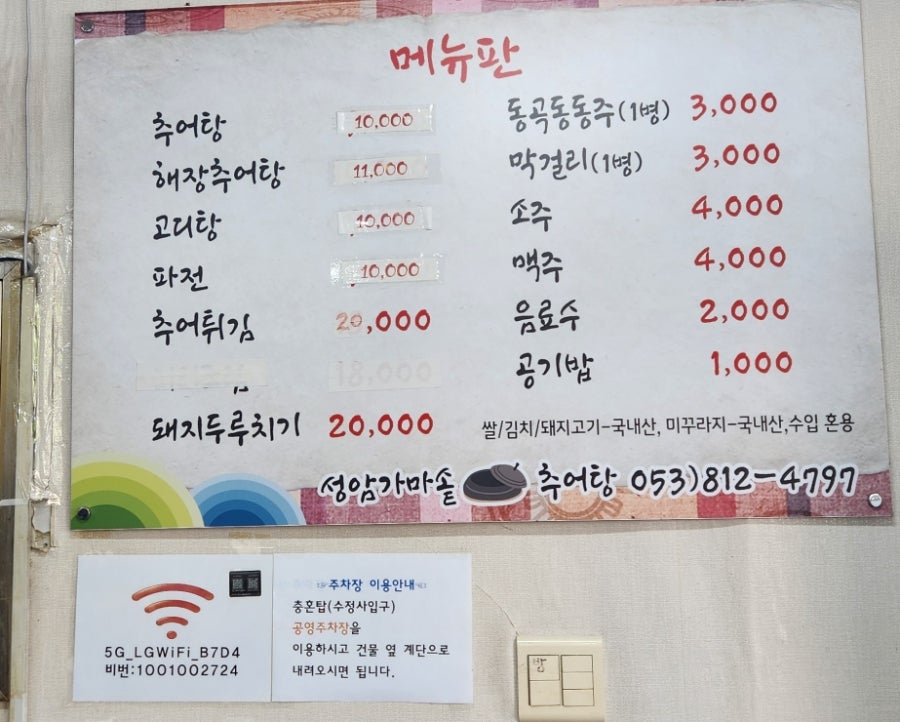 메뉴판
추어탕 10,000
해장추어탕 11,000
고디탕 10,000
파전 10,000
추어튀김 20,000
18,000
돼지두루치기 20,000
동곡동동주(1병) 3,000
막걸리(1병) 3,000
소주 4,000
맥주 4,000
음료수 2,000
공기밥 1,000
쌀/김치/돼지고기-국내산, 미꾸라지-국내산,수입 혼용
성암가마솥 추어탕 053)812-4797
5G_LGWiFi_B7D4
비번:1001002724
주차장 이용안내
충혼탑(수정사입구)
공영주차장을
이용하시고 건물 옆 계단으로
내려오시면 됩니다.
방